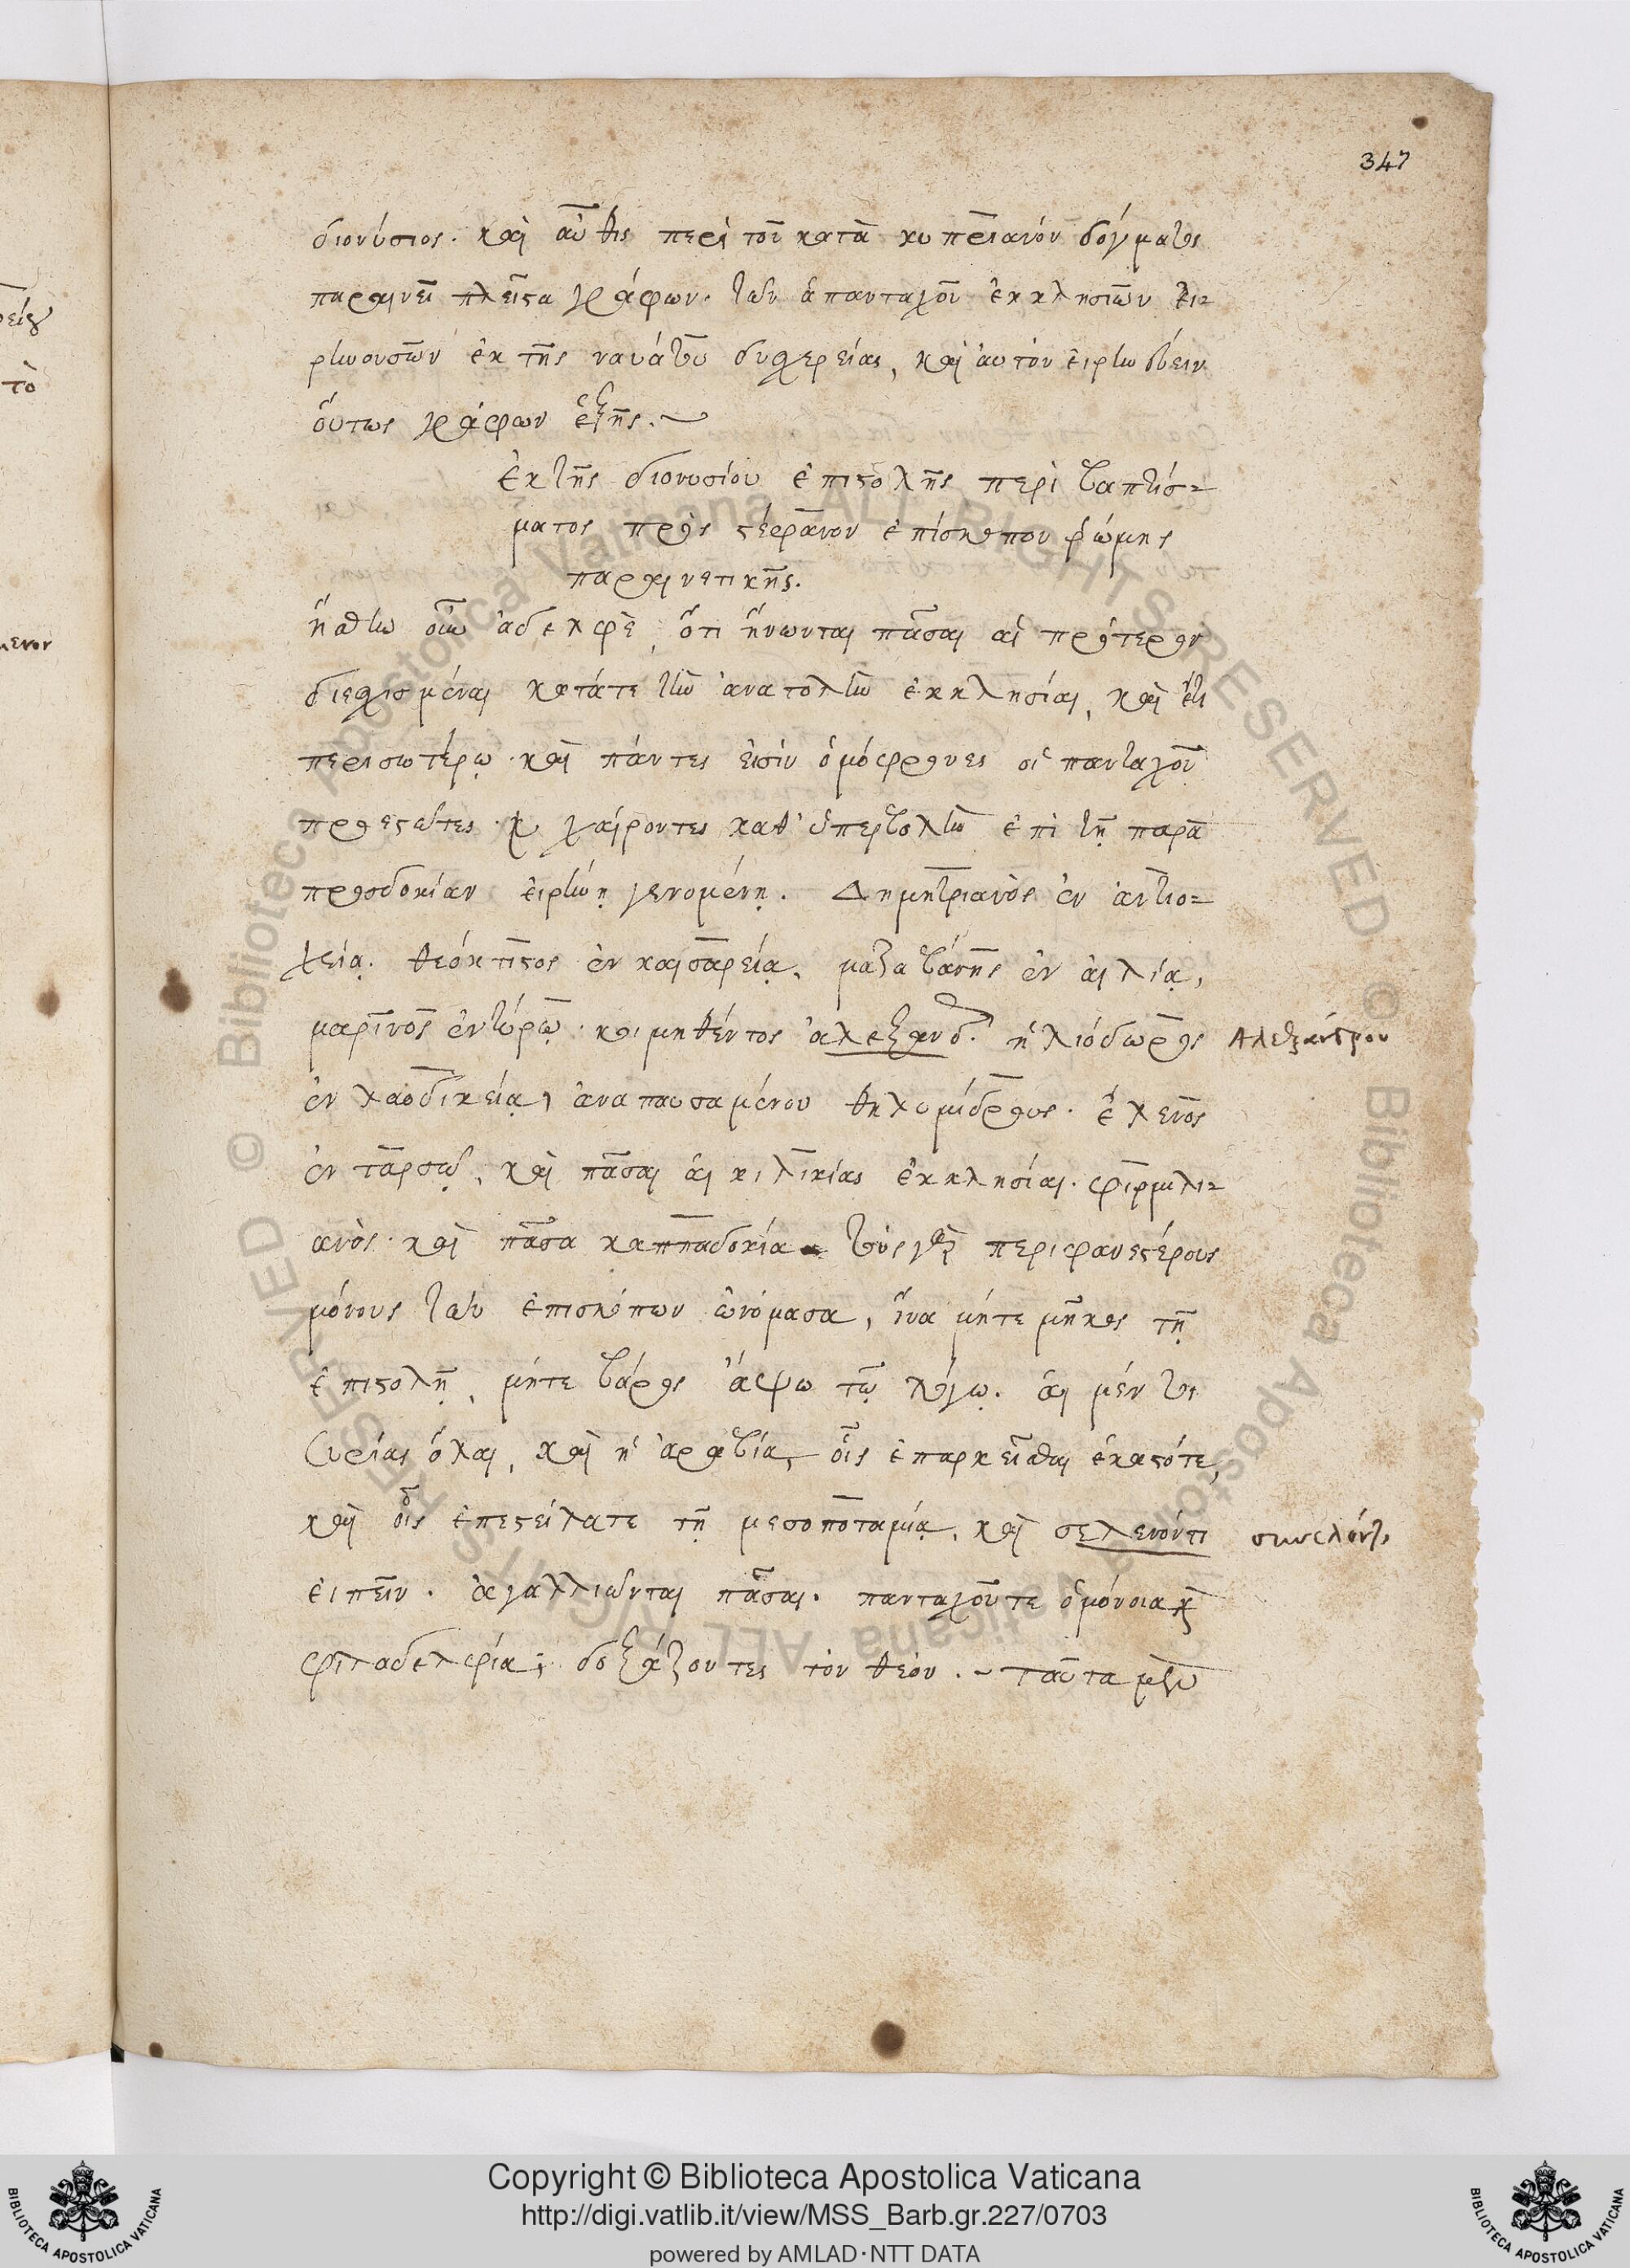 347
διονύσιος. καὶ αὖθις περὶ τοῦ κατὰ κυπριανόν δόγματος
παραινεῖ πλεῖστα γράφων. τῶν ἁπανταχοῦ ἐκκλησιῶν εἰ-
ρηνουσῶν ἐκ τῆς ναυάτου δυσχερείας, καὶ αυτόν εἰρηνεύειν
ὅυτως γράφων ἑξῆς.
ἐκ τῆς διονυσίου ἐπιστολῆς περὶ βαπτίσ-
ματος πρὸς στέφανον ἐπίσκοπον ῥώμης
παραινετικῆς.
ἤσθην οὖν ἀδελφὲ, ὅτι ἥνωνται πᾶσαι αἱ πρότερον
διεσχισμέναι κατάτε τὴν ἀνατολὴν ἐκκλησίαι, καὶ ἔτι
περισωτέρω. καὶ πάντες εἰσὶν ὁμόφρονες οἱ πανταχοῦ
προεστῶτες. καὶ χαίροντες καθ' ὑπερβολὴν ἐπὶ τῇ παρὰ
προσδοκίαν εἰρήνῃ γενομένῃ. Δημητριανὸς ἐν ἀντιο-
χείᾳ. θεόκτιστος ἐν καισαρείᾳ, μαζαβάνης ἐν αἰλίᾳ,
μαρῖνος ἐν τύρῳ. κοιμηθέντος ἀλεξανδ. ἡλιόδωρος
Αλεξάνδρου
ἐν λαοδικείᾳ, ἀναπαυσαμένου θηλυμίδρους. ἑλενος
ἐν τάρσῳ, καὶ πᾶσαι ἁι κιλικίας ἐκκλησίαι. φιρμιλι-
ανὸς. καὶ πᾶσα καππαδοκία τοὺς γὰρ περιφανεστέρους
μόνους τῶν ἐπισκόπων ὠνόμασα, ἵνα μήτε μῆκος τῇ
ἐπιστολῇ, μήτε βάρος ἅψω τῷ λόγῳ. ἁι μέν τοι
συρίας ὅλαι, καὶ ἡ ἀραβία, οἷς ἐπαρκεῖσθαι ἑκαστότε,
καὶ οἷς ἐπεστείλατε τῇ μεσοποταμίᾳ, καὶ σελενόντι
συνελόντι
εἰπεῖν. ἀγαλλιῶνται πᾶσαι. πανταχοῦτε ὁμόνοια καὶ
φιλαδελφία; δοξάζοντες τὸν θεόν. ταῦτα μὲν
μενον
τὸ
Copyright © Biblioteca Apostolica Vaticana
http://digi.vatlib.it/view/MSS_Barb.gr.227/0703
powered by AMLAD·NTT DATA
BIBLIOTECA APOSTOLICA VATICANA
BIBLIOTECA APOSTOLICA VATICANA
© Biblioteca Apostolica Vaticana ALL RIGHTS RESERVED © Biblioteca Apostolica Vaticana ALL RIGHTS RESERVED